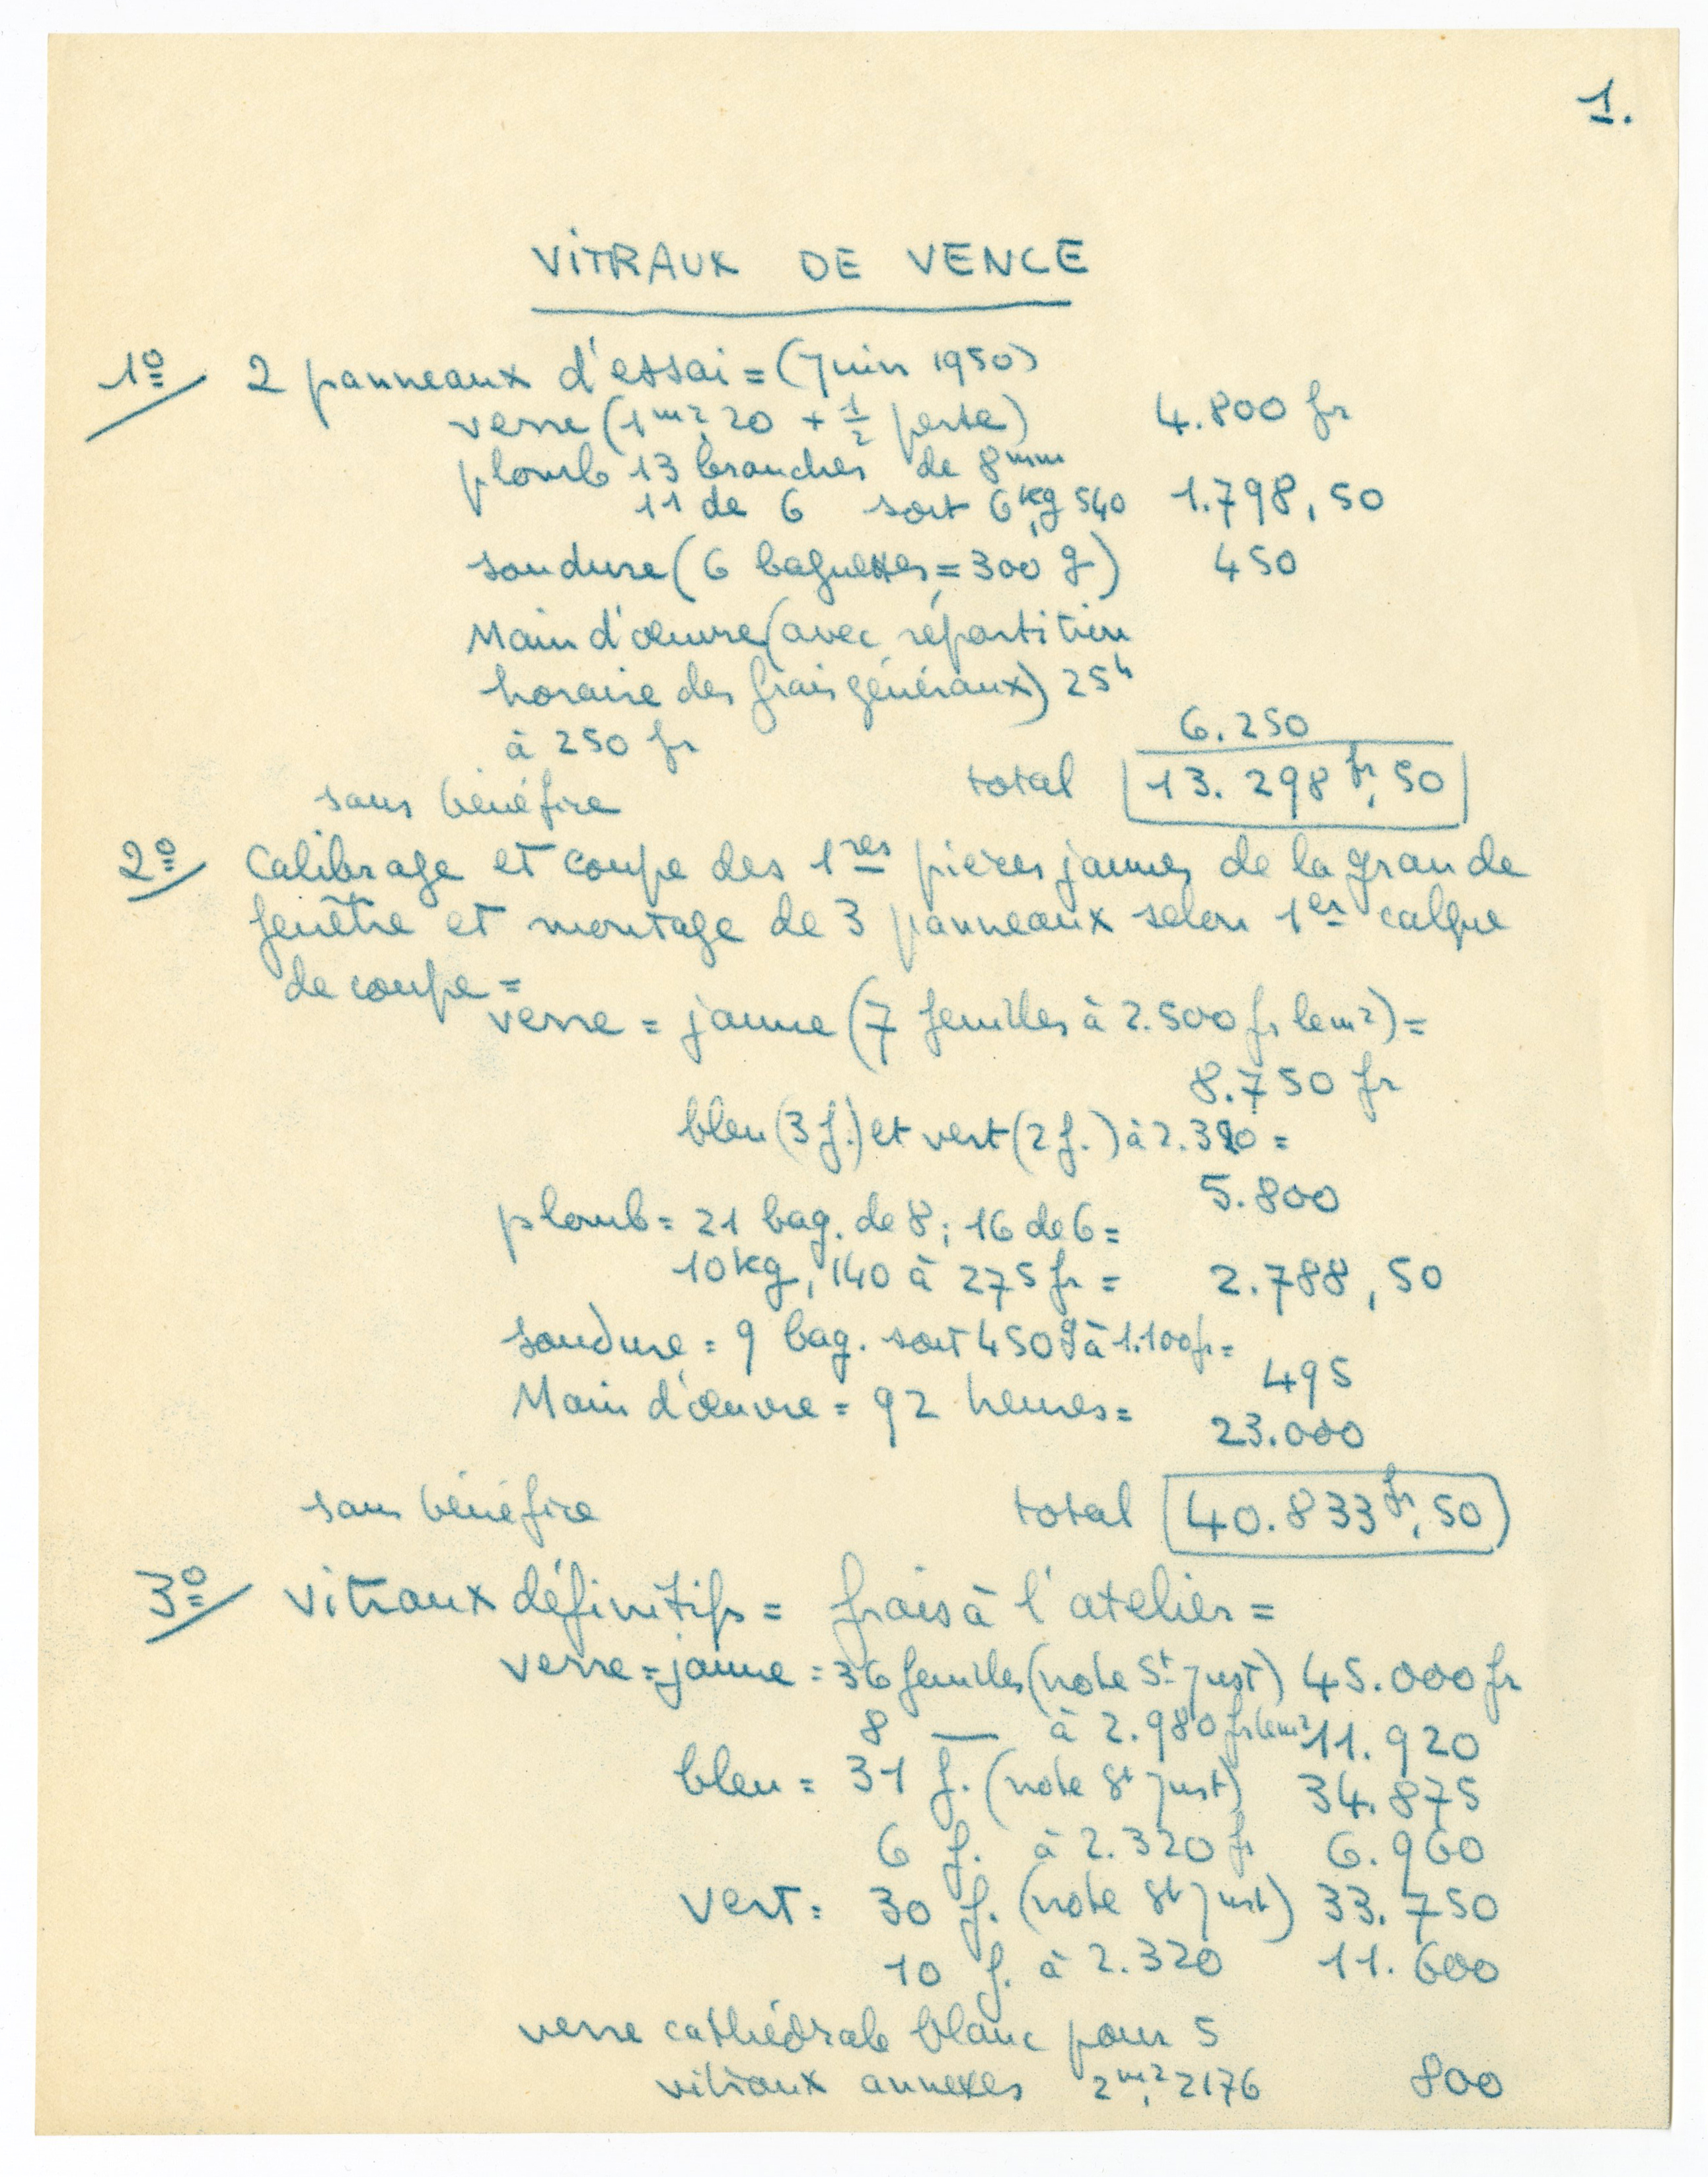 1.
VITRAUX DE VENCE
1º/ 2 panneaux d'essai = (Juin 1950)
verre (1 m², 20 + 1/2 perte) 4.800 fr
plomb 13 branches de 8 mm
11 de 6 soit 6 kg, 540 1.798, 50
soudure (6 baguettes = 300 g) 450
Main d'œuvre (avec répartition
horaire des frais généraux) 25 h
à 250 fr 6.250
sans bénéfice total 13.298 fr, 50
2º/ Calibrage et coupe des 1res pièces jaunes de la grande
fenêtre et montage de 3 panneaux selon 1er calque
de coupe =
verre = jaune (7 feuilles à 2.500 fr le m²) =
8.750 fr
bleu (3 f.) et vert (2 f.) à 2.320 =
5.800
plomb = 21 bag. de 8 ; 16 de 6 =
10 kg, 140 à 275 fr = 2.788, 50
soudure = 9 bag. soit 450 g à 1.100 fr =
495
Main d'œuvre = 92 heures =
23.000
sans bénéfice total 40.833 fr, 50
3º/ Vitraux définitifs = frais à l'atelier =
verre = jaune = 36 feuilles (note St Just) 45.000 fr
8 — à 2.980 fr le m² 11.920
bleu = 31 f. (note St Just) 34.875
6 f. à 2.320 fr 6.960
vert = 30 f. (note St Just) 33.750
10 f. à 2.320 11.600
verre cathédrale blanc pour 5
vitraux annexes 2 m², 2176 800